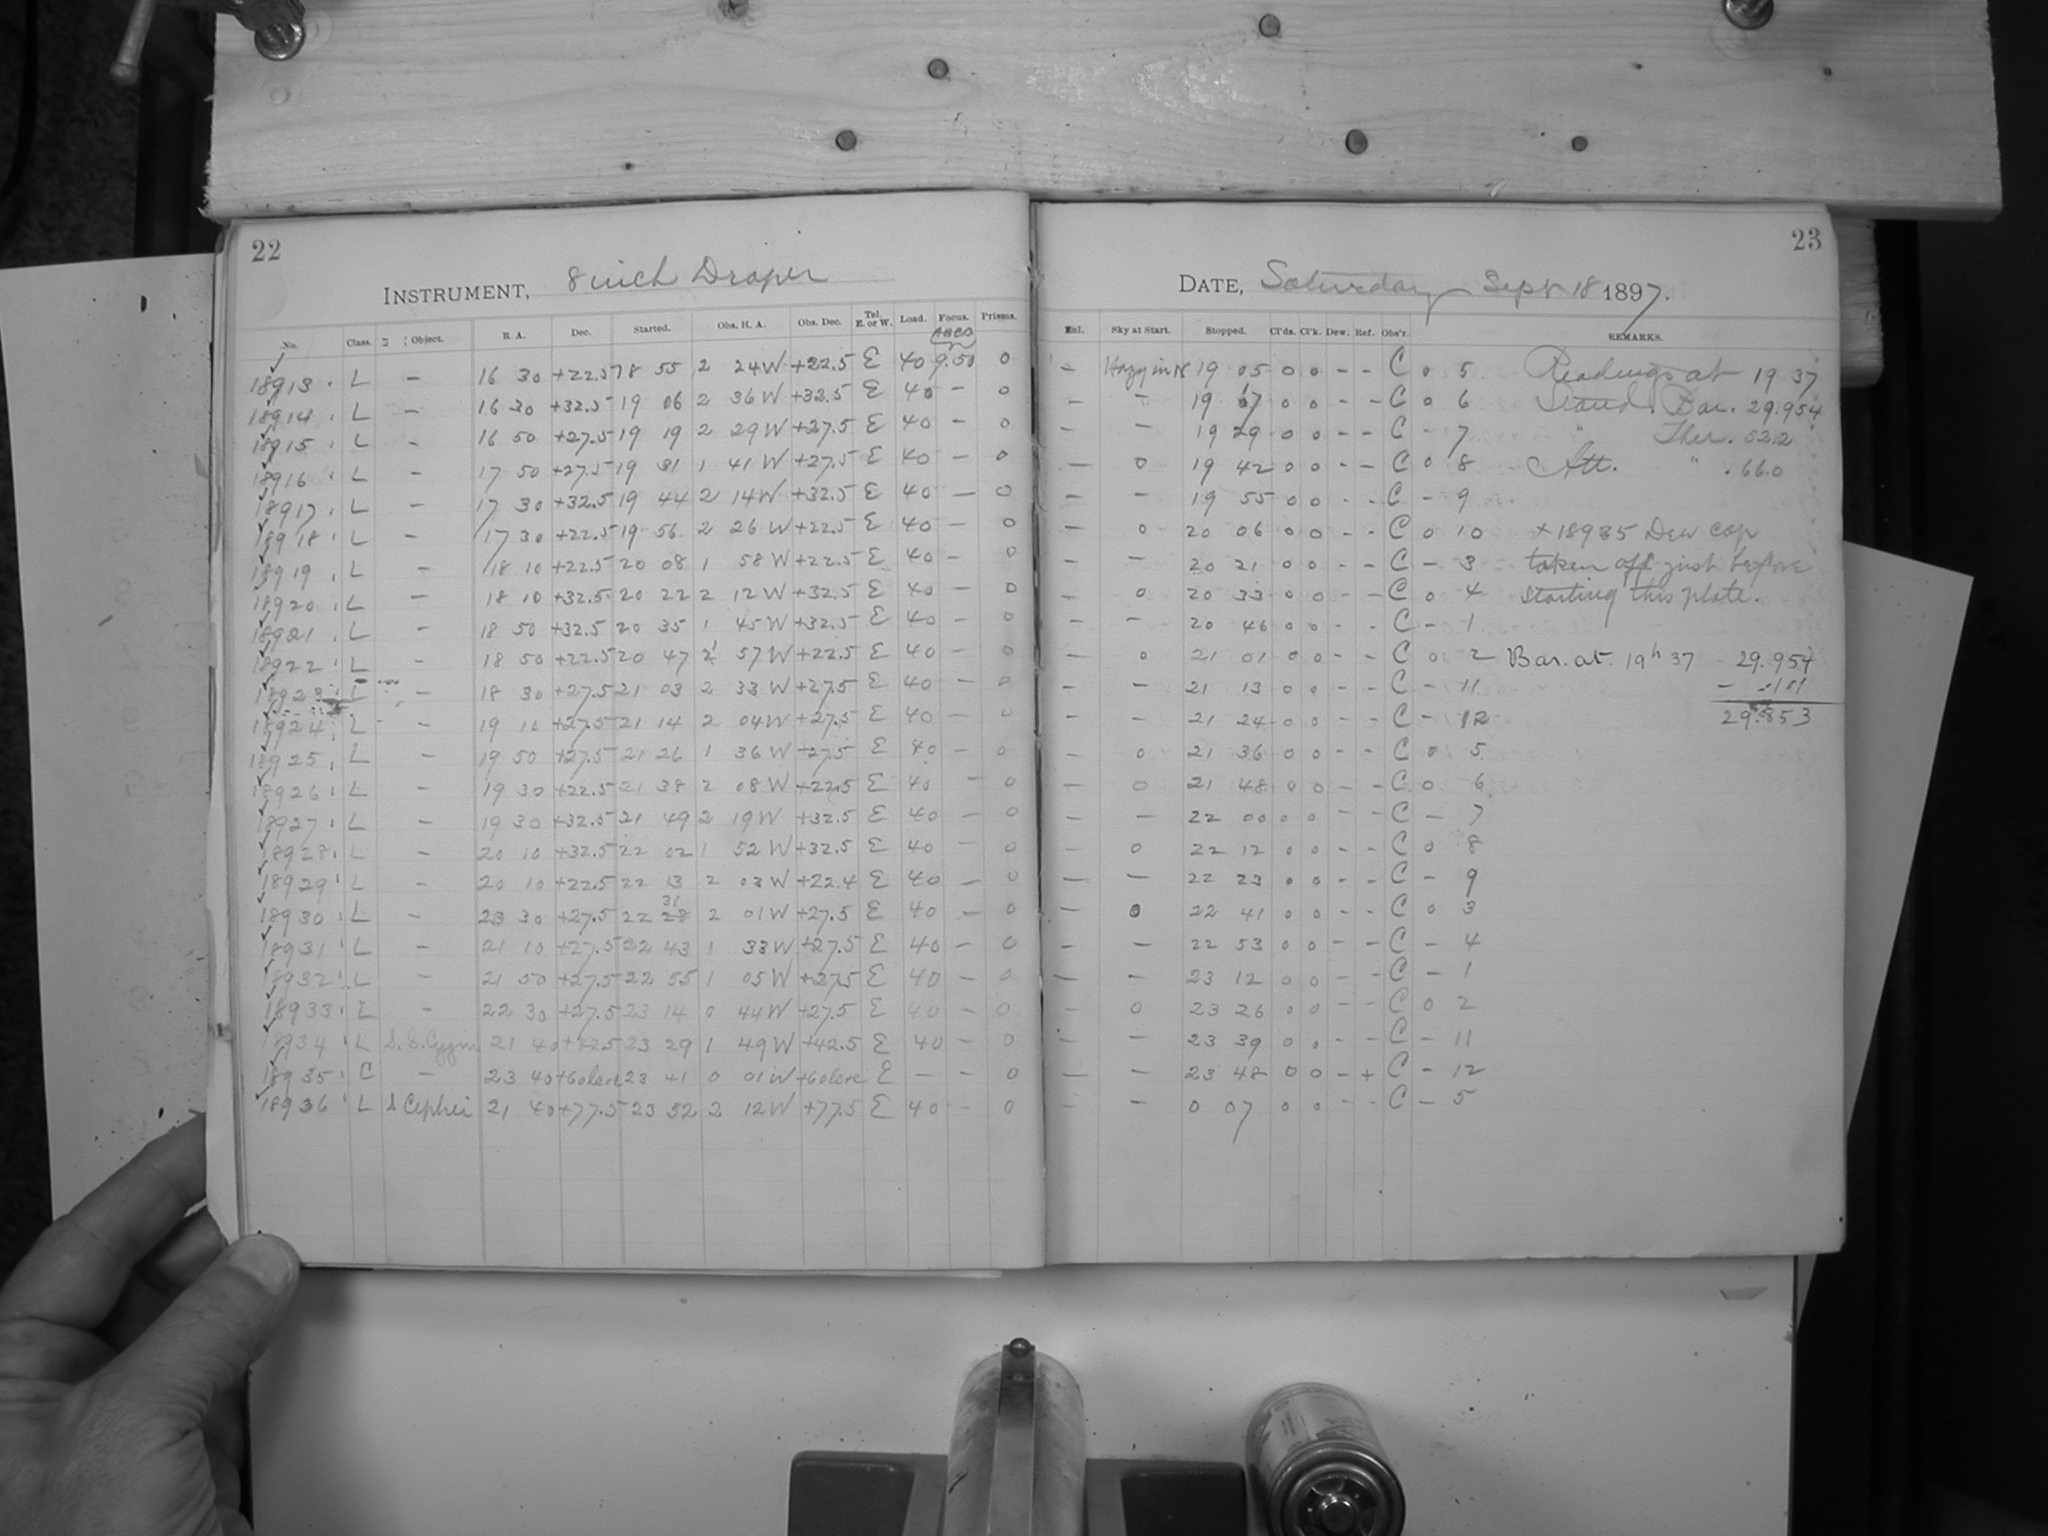 22
INSTRUMENT, 8 inch Draper
No. Class. Object. R. A. Dec. Started. Obs. H. A. Obs. Dec. Tel. E. or W. Load. Focus. Prisms.
18913 L – 16 30 +22.5 18 55 2 24 W +22.5 E 40 9.50 0
18914 L – 16 30 +32.5 19 06 2 36 W +32.5 E 40 – 0
18915 L – 16 50 +27.5 19 19 2 29 W +27.5 E 40 – 0
18916 L – 17 50 +27.5 19 31 1 41 W +27.5 E 40 – 0
18917 L – 17 30 +32.5 19 44 2 14 W +32.5 E 40 – 0
18918 L – 17 30 +22.5 19 56 2 26 W +22.5 E 40 – 0
18919 L – 18 10 +22.5 20 08 1 58 W +22.5 E 40 – 0
18920 L – 18 10 +32.5 20 22 2 12 W +32.5 E 40 – 0
18921 L – 18 50 +32.5 20 35 1 45 W +32.5 E 40 – 0
18922 L – 18 50 +22.5 20 47 57 W +22.5 E 40 – 0
18923 L – 18 30 +27.5 21 03 2 33 W +27.5 E 40 – 0
18924 L – 19 10 +27.5 21 14 2 04 W +27.5 E 40 – 0
18925 L – 19 50 +27.5 21 26 1 36 W +27.5 E 40 – 0
18926 L – 19 30 +22.5 21 38 2 08 W +22.5 E 40 – 0
18927 L – 19 30 +32.5 21 49 2 19 W +32.5 E 40 – 0
18928 L – 20 10 +32.5 22 02 1 52 W +32.5 E 40 – 0
18929 L – 20 10 +22.5 22 13 2 03 W +22.4 E 40 – 0
18930 L – 30 +27.5 22 31 2 01 W +27.5 E 40 – 0
18931 L – 21 10 +27.5 22 43 1 33 W +27.5 E 40 – 0
18932 L – 21 50 +27.5 22 55 1 05 W +27.5 E 40 – 0
18933 L – 22 30 +27.5 23 14 0 44 W +27.5 E 40 – 0
18934 L S.S. Cygni 21 40 +42.5 23 29 1 49 W +42.5 E 40 – 0
18935 C – 23 40 +60 23 41 0 01 W +60 E – – 0
18936 L S Cephei 21 40 +77.5 23 52 2 12 W +77.5 E 40 – 0
23
DATE, Saturday Sept 18 1897.
Enl. Sky at Start. Stopped. Cl'ds. Cl'k. Dew. Ref. Obs'r. REMARKS.
– Hazy in N 19 05 0 0 – – C 0 5 Readings at 19 37
– – 19 17 0 0 – – C 0 6 Stand. Bar. 29.954
– – 19 29 0 0 – – C – 7 " Ther. 52.2
– 0 19 42 0 0 – – C 0 8 Att. " . 66.0
– – 19 55 0 0 – – C – 9
– 0 20 06 0 0 – – C 0 10 + 18935 Dew cap
– – 20 21 0 0 – – C – 3 taken off just before
– 0 20 33 0 0 – – C 0 4 starting this plate.
– – 20 46 0 0 – – C – 1
– 0 21 01 0 0 – – C 0 2 Bar. at 19h 37 29.954
– – 21 13 0 0 – – C – 11 – .101
– – 21 24 0 0 – – C – 12 29.853
– 0 21 36 0 0 – – C 0 5
– 0 21 48 0 0 – – C 0 6
– – 22 00 0 0 – – C – 7
– 0 22 12 0 0 – – C 0 8
– – 22 23 0 0 – – C – 9
– 0 22 41 0 0 – – C 0 3
– – 22 53 0 0 – – C – 4
– – 23 12 0 0 – – C – 1
– 0 23 26 0 0 – – C 0 2
– – 23 39 0 0 – – C – 11
– – 23 48 0 0 – + C – 12
– – 0 07 0 0 – – C – 5